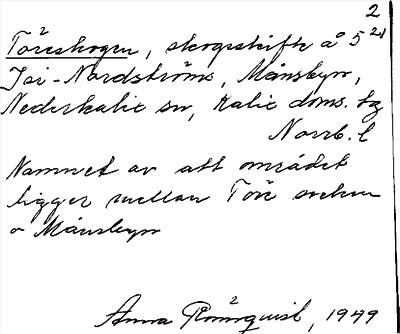 2
Töreskogen, skogsskifte å 5 21
Isi-Nordströms, Månsbyn,
Nederkalix sn, Kalix doms. tg
Norrb. l
Namnet av att området
ligger mellan Töre socken
o Månsbyn
Anna Rönnquist, 1949